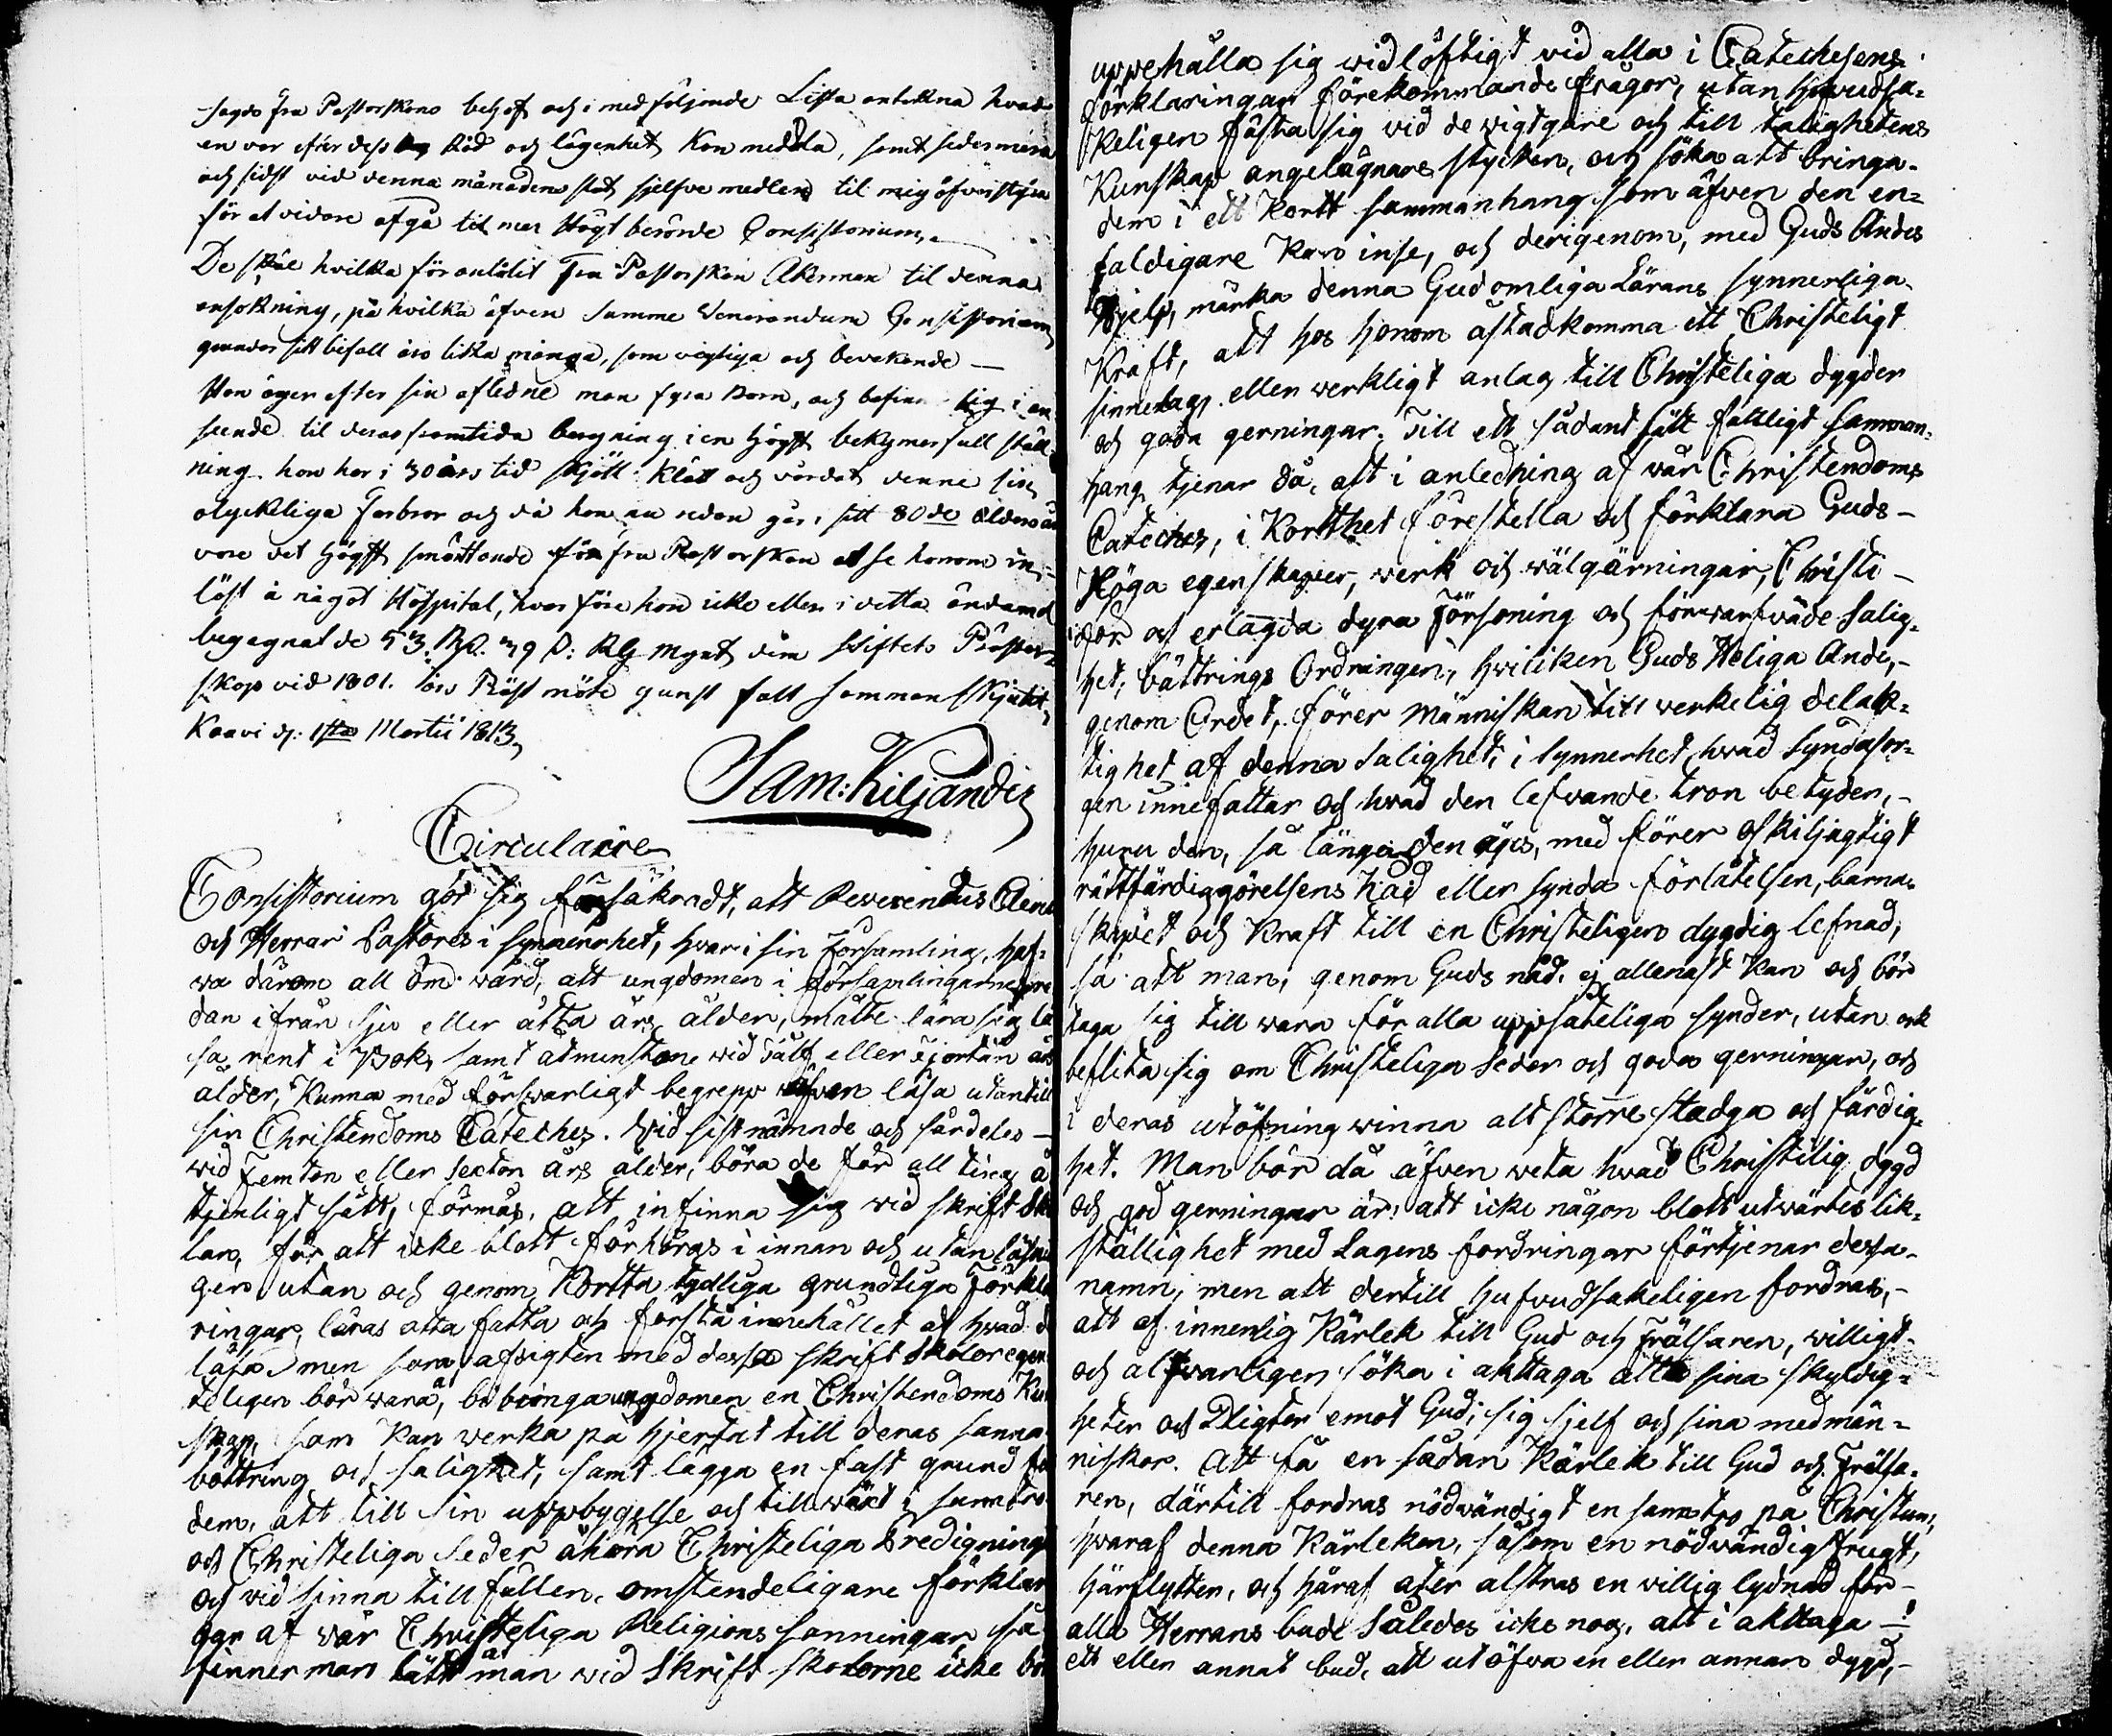 sagde fru Pastorskans behof och i medföljande Lista anteckna hvad
en var efter dess råd och lägenhet kan meddela, samt sedermera
och sidst vid denna månadens slut sjelfve medlen til mig öfverstyra
för at vidare afgå til mer Högt berörde Consistorium.
De skäl hvilka föranlåtit Fru Pastorskan Åkerman til denna
ansökning, på hvilka äfven samme Venerandum Consistorium
grundar sitt bifall äro lika många, som vigtiga och bevekande —
Hon äger efter sin aflidne man fyra Barn, och befinner sig i an
seende til deras framtida bergning i en högst bekymerfull ställ-
ning hon har i 30 års tid skjött klädt och vårdat denne sin
olyckliga Farbror och då han nu redan går i sitt 80de ålders år
vore det högst smärtande för fru Pastorskan at se honom in-
löst å något Hospital, hvarföre hon icke eller i detta ändamål
begagnat de 53 RD. 39 s: RG Mynt som Stiftets Präster-
skap vid 1801. års Präst möte gunst fält sammanskjutit,
Kaavi d. 1sta Martii 1813,
Sam: Kiljander
Circulaire
Consistorium gör sig försäkradt, att Reverendus Clerus
och Herrar Pastores i synnerhet, hvar i sin Församling, haf-
va därom all öm wård, att ungdomen i församlingarne re
dan ifrån sju eller åtta års ålder, måtte lära sig lä
sa rent i Bok, samt åtminstone wid tålf eller fjortån års
ålder, kunna med försvarligt begrepp äfven läsa utantill
sin Christendoms Cateches. Wid sistnämnde och särdeles —
wid Femton eller Sexton års ålder, böra de för all ting å
tjenligt sätt, förmås, att infinna sig wid skrift Sko
lan, för att icke blott förhöras i innan och utanläsnin
gen utan och genom Kortta tydliga grundliga Förkla
ringar, läras atta fatta och förstå innehållet af hwad d
läsa men som afsigten med dessa skrift Skolor egen
teligen bör wara, bibringa ungdomen en Christendoms Kun
skap, som kan verka på hjertat till deras sanna
bättring och salighet, samt lägga en fast grund för
dem, att till sin uppbyggelse och tillwäxt i sann tro
och Christeliga Seder åhöra Christeliga Predikningar
och vid sinna tillfällen, omständeligare förklarin
gar af vår Christeliga Religions sanningar, Så
finner man lätt at man wid Skrift skolorne icke bör
uppehålla sig widlöftigt vid alla i Catechesens
förklaringar förekommande frågor, utan hufvudsa-
keligen fästa sig vid de wigtigare och till salighetens
Kunskap angelägnare stycken, och söka att bringa
dem i ett Kortt sammanhang som äfven den en-
faldigare kan inse, och derigenom, med Guds Andes
hjelp, märka denna Gudomliga Lärans synnerliga
Kraft, att hos honom åstadkomma ett Christeligt
sinnelag eller werkligt anlag till Christeliga dygder
och goda gerningar. Till ett sådant sätt fattligt samman-
hang tjenar då, att i anledning af vår Christendoms
Cateches, i Kortthet föreställa och förklara Guds —
Höga egenskaper, werk och wälgärningar, Christi —
död och erlagda dyra Försoning och förwärfwade Salig-
het, bättrings Ordningen, hwilken Guds Heliga Ande, —
genom Ordet, förer Människan till werkelig delak-
tighet af denna Salighet, i synnerhet hwad Syndasor-
gen innefattar och hvad den lefvande tron betyder, —
huru den, så länge den äges, med förer oskiljagtigt
rättfärdiggörelsens Nåd eller synda förlåtelsen, barna-
skapet och Kraft till en Christeligen dygdig lefnad,
så att man, genom Guds nåd, ej allenast kan och bör
taga sig till wara för alla uppsåteliga synder, utan ock
beflita sig om Christeliga Seder och goda gerningar, och
i deras utöfning winna allt större stadga och färdig-
het. Man bör då äfven weta hvad Christelig dygd
och god gerningar är: att icke någon blott utwärtes lik-
ställighet med Lagens fordringar förtjenar dessa
namn, men att dertill hufvudsakeligen fordras, —
att af innerlig Kärlek till Gud och Frälsaren, willigt
och alfvarligen söka i akttaga alla sina skyldig-
heter och Pligter emot Gud, sig sjelf och sina medmän-
niskor. Att få en sådan Kärlek till Gud och Frälsa-
ren, därtill fordras nödwändigt en sann tro på Christum,
hvaraf denna Kärleken, såsom en nödwändig frugt,
härflytter, och häraf åter alstras en willig lydnad för —
alla Herrans bud Således icke nog, att i akttaga —
ett eller annat bud, att utöfva en eller annan dygd, —